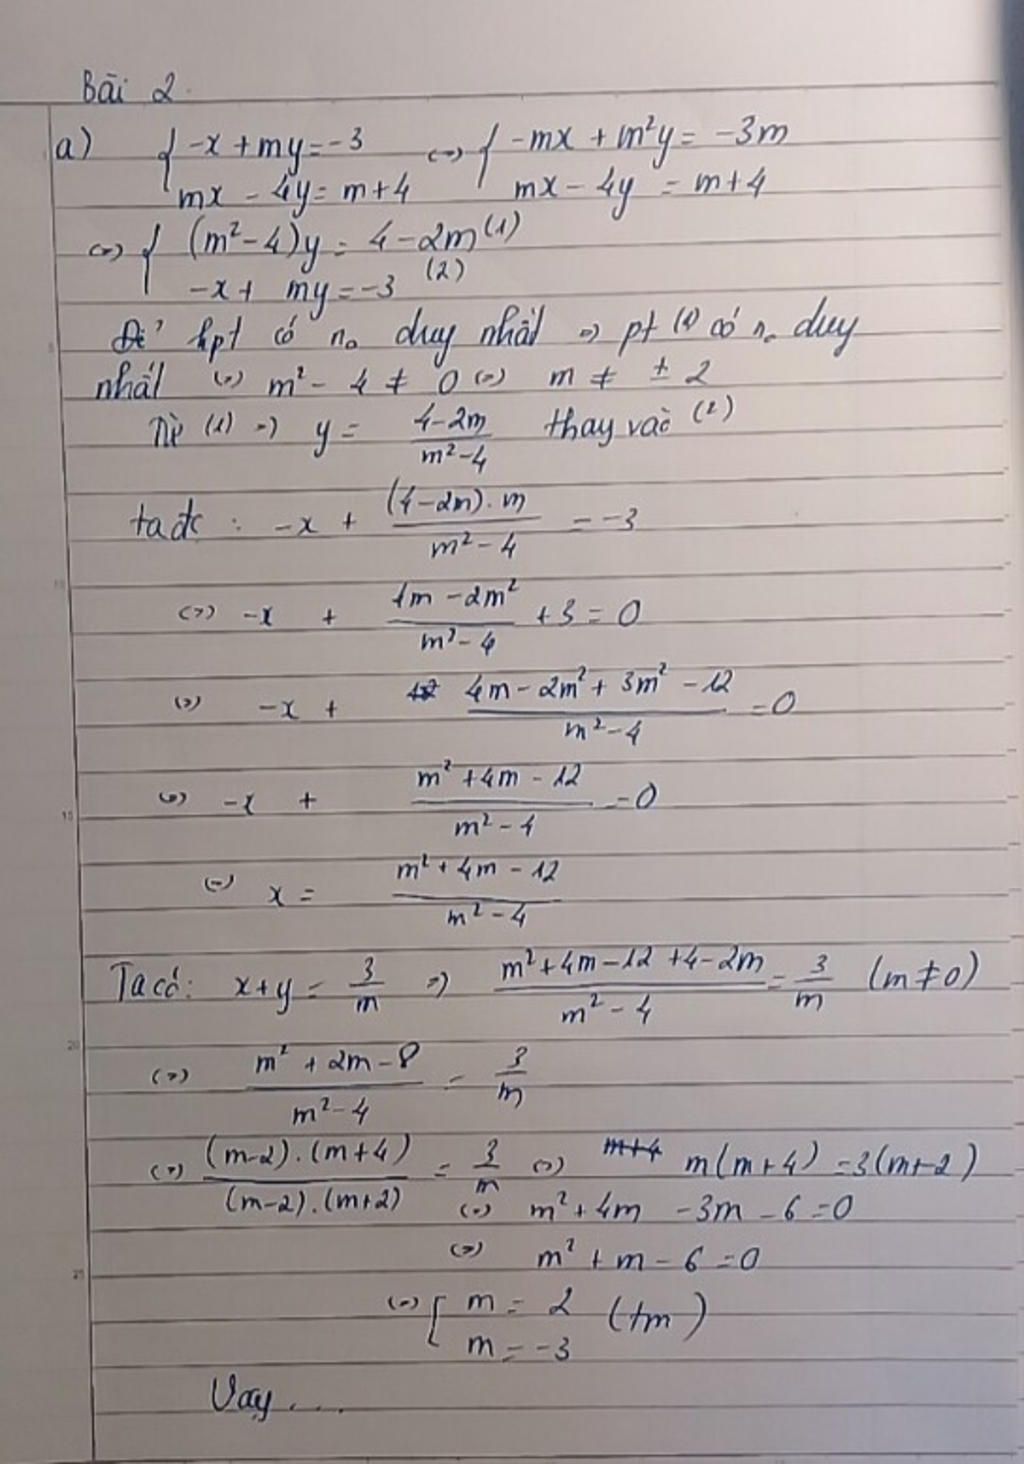 Bài 2.
a) { -x + my = -3 <=> { -mx + m²y = -3m
mx - 4y = m+4 mx - 4y = m+4
<=> { (m² - 4)y = 4 - 2m (1)
-x + my = -3 (2)
Để hpt có n₀ duy nhất => pt (1) có n₀ duy
nhất <=> m² - 4 ≠ 0 <=> m ≠ ± 2
Từ (1) => y = (4-2m)/(m²-4) thay vào (2)
ta đc : -x + ((4-2m).m)/(m²-4) = -3
<=> -x + (4m - 2m²)/(m²-4) + 3 = 0
<=> -x + (4m - 2m² + 3m² - 12)/(m²-4) = 0
<=> -x + (m² + 4m - 12)/(m²-4) = 0
<=> x = (m² + 4m - 12)/(m²-4)
Ta có: x+y = 3/m => (m² + 4m - 12 + 4 - 2m)/(m²-4) = 3/m (m ≠ 0)
<=> (m² + 2m - 8)/(m²-4) = 3/m
<=> ((m-2).(m+4))/((m-2).(m+2)) = 3/m <=> m+4 m(m+4) = 3(m+2)
<=> m² + 4m - 3m - 6 = 0
<=> m² + m - 6 = 0
<=> [ m = 2 (tm)
m = -3
Vậy ....